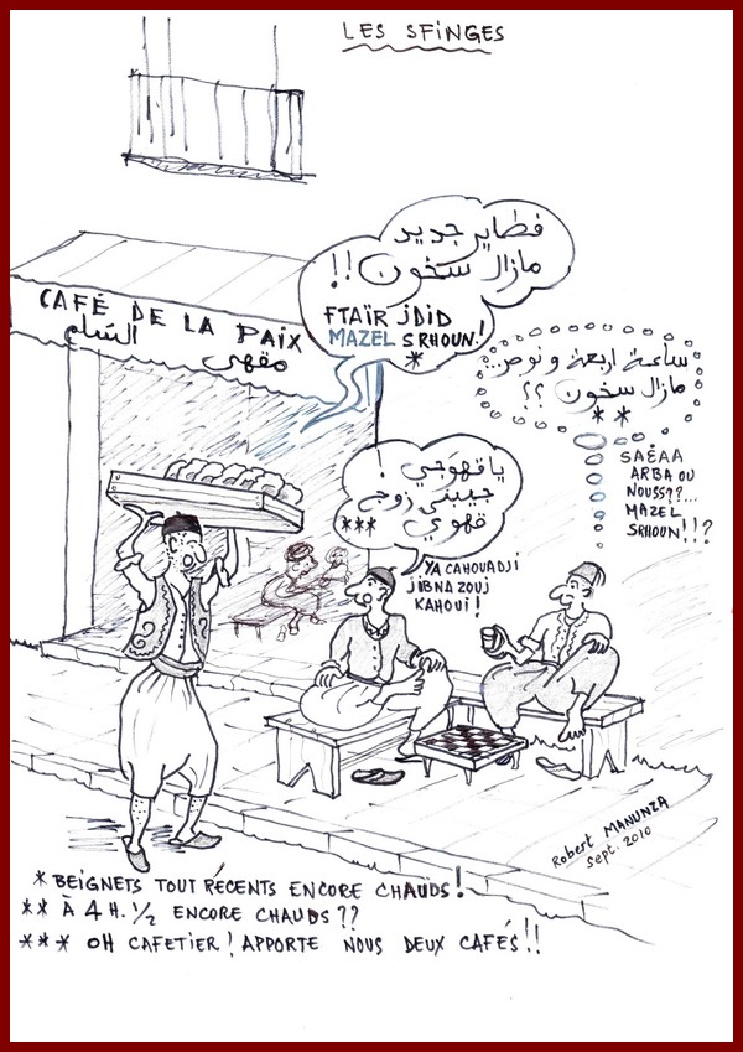 LES SFINGES
فطاير جديد
مازال سخون !!
FTAÏR JDID
MAZEL SRHOUN!
*
CAFÉ DE LA PAIX
السّلم
مقهى
ساعة اربعة و نوص...
مازال سخون ؟؟
* *
SAÉAA
ARBA OU
NOUSS??...
MAZEL
SRHOUN!!?
يا قهوجي !
جيبنى زوج
قهوي
***
YA CAHOUADJI
JIBNA ZOUJ
KAHOUI !
Robert MANUNZA
Sept. 2010
* BEIGNETS TOUT RÉCENTS ENCORE CHAUDS!
** À 4 H. 1/2 ENCORE CHAUDS ??
*** OH CAFETIER ! APPORTE NOUS DEUX CAFÉS !!